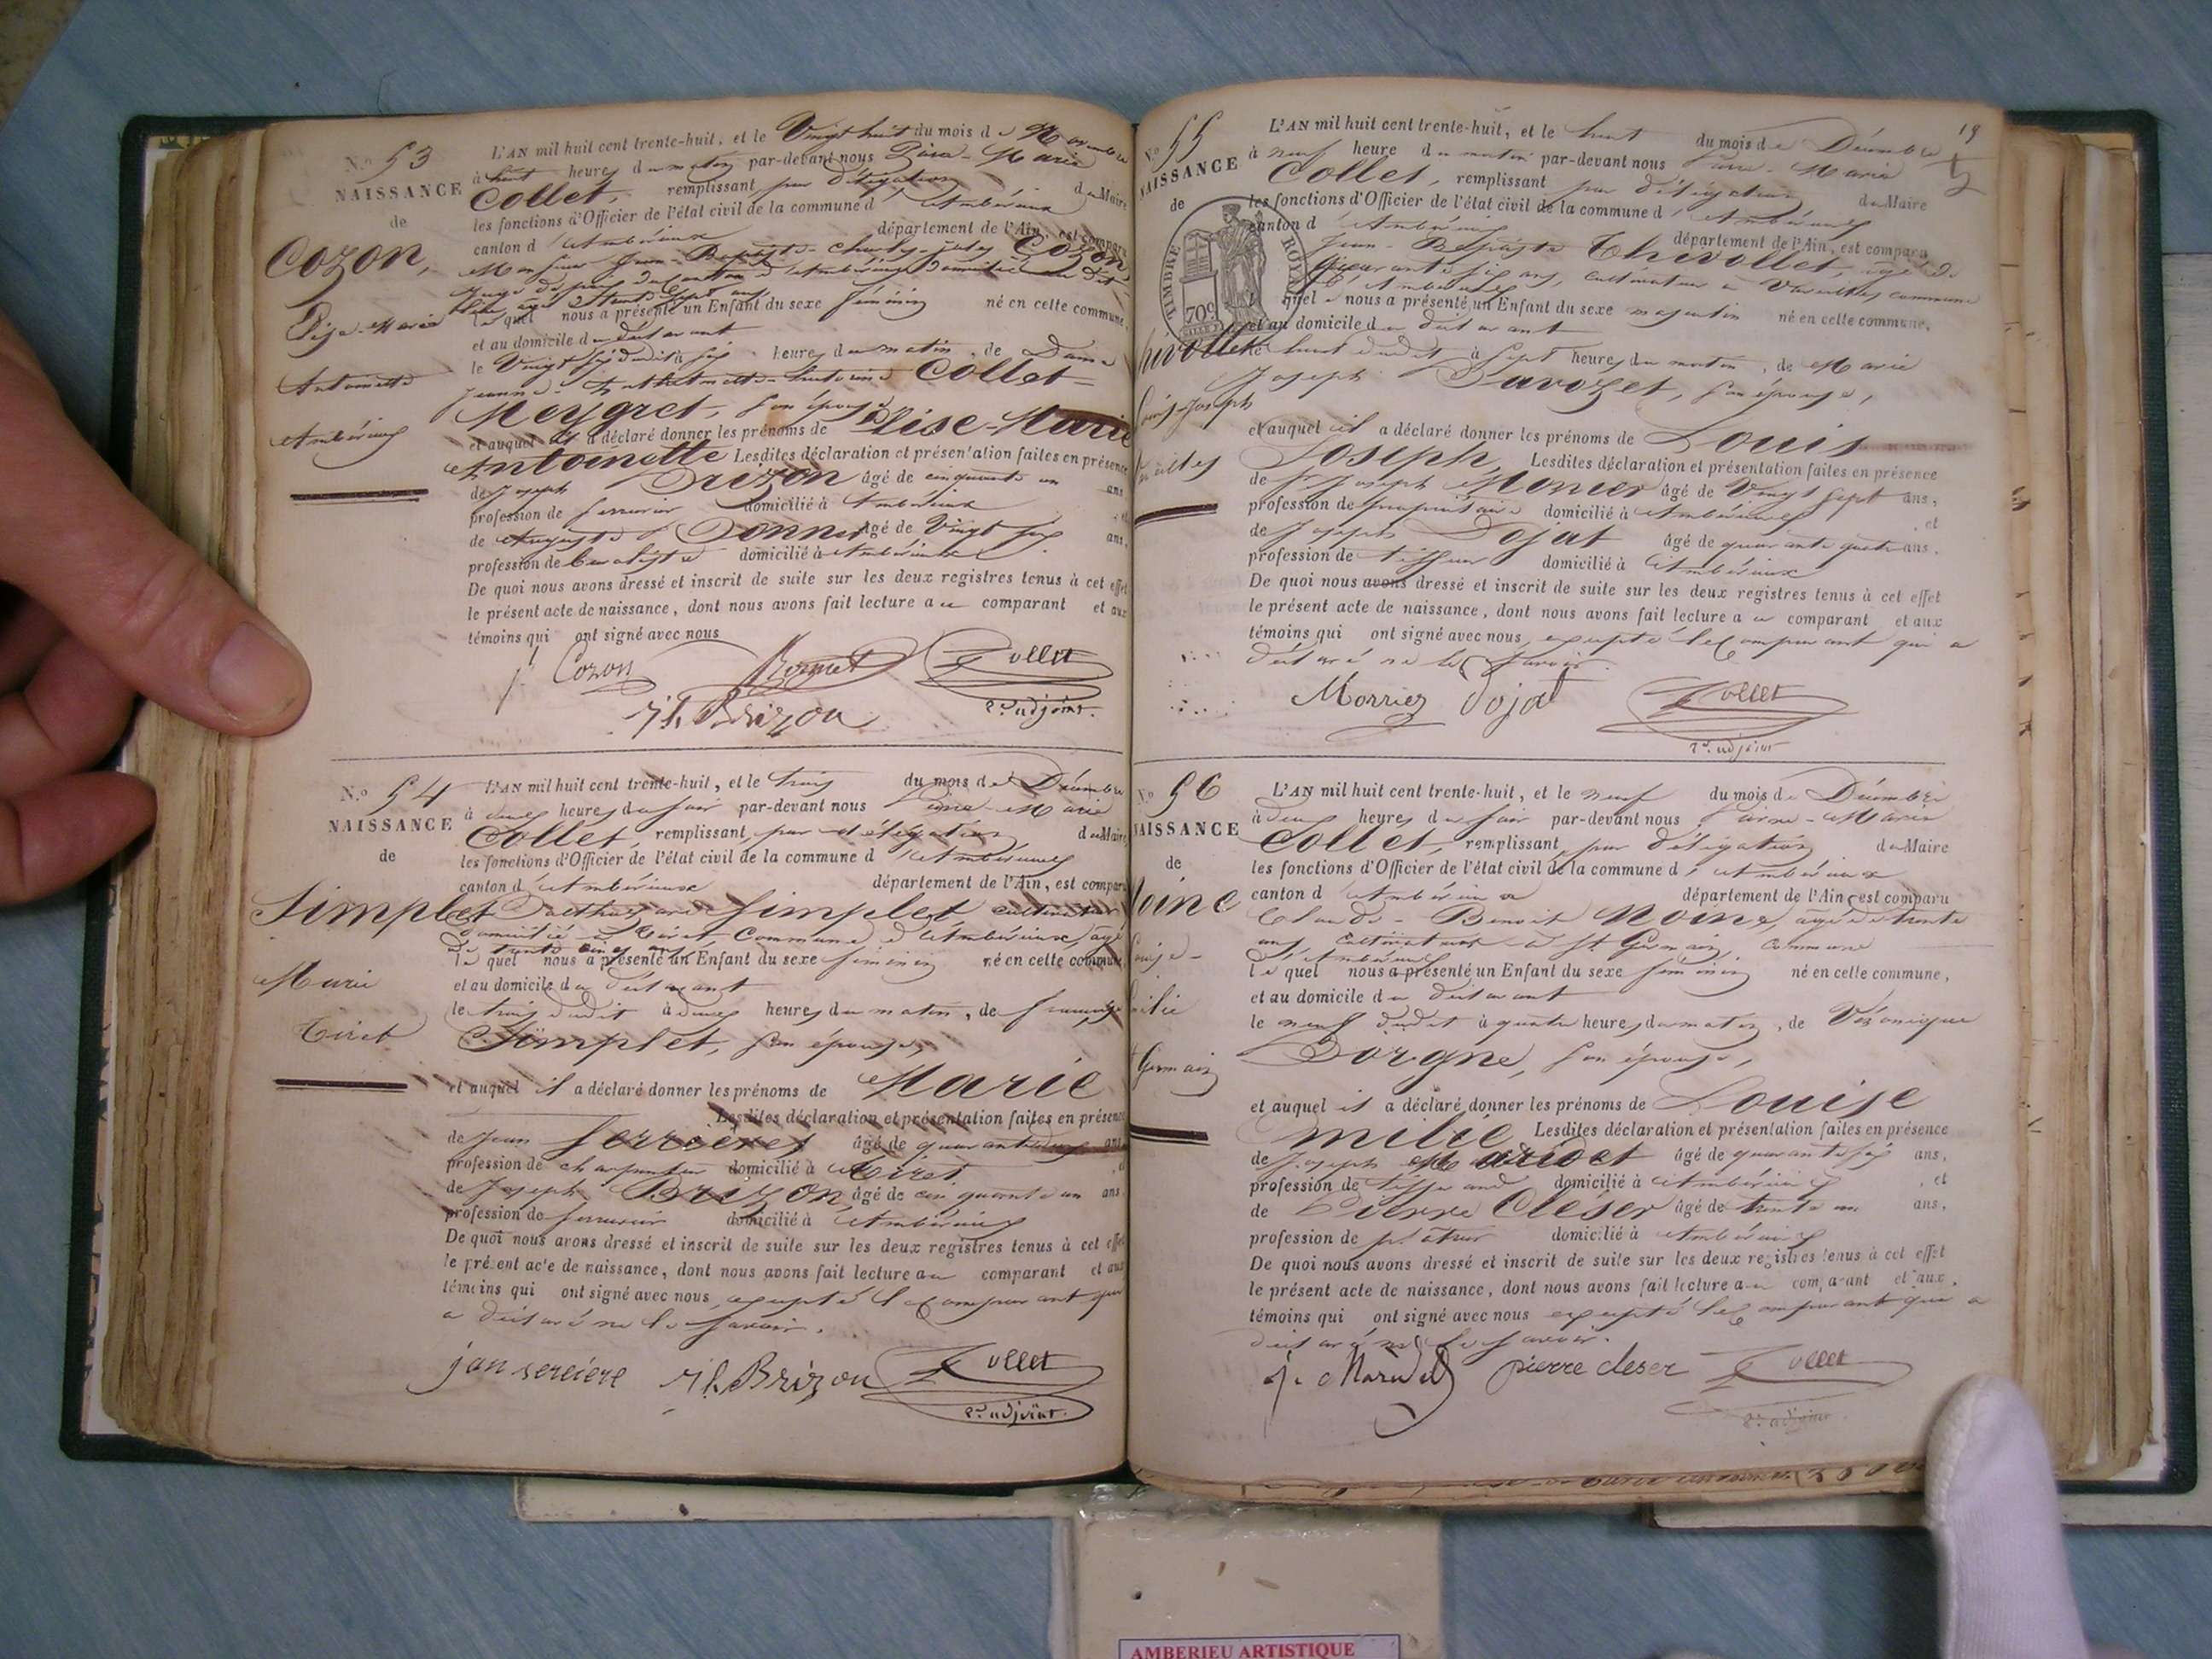 N.o 53
NAISSANCE
de
Cozon,
Elise-Marie
Antoinette
Ambérieux
L'AN mil huit cent trente-huit, et le Vingt huit du mois de Novembre
à huit heures du matin par-devant nous Pierre-Marie
Collet, remplissant par délégation du Maire
les fonctions d'Officier de l'état civil de la commune d'Ambérieux
canton d'Ambérieux département de l'Ain, est comparu
Monsieur Jean-Baptiste-Charles-Jules Cozon
juge de paix du canton d'Ambérieux, domicilié au dit
lieu, âgé de trente sept ans
lequel nous a présenté un Enfant du sexe féminin né en cette commune,
et au domicile du déclarant
le Vingt six dudit à six heures du matin, de Dame
Jeanne- Collet-
Meygret, son épouse
et auquel il a déclaré donner les prénoms de Elise-Marie
Antoinette Lesdites déclaration et présentation faites en présence
de Joseph Brizon âgé de cinquante un ans
profession de serrurier domicilié à Ambérieux et
de Auguste Bonnet âgé de Vingt six ans,
profession de domicilié à Ambérieux
De quoi nous avons dressé et inscrit de suite sur les deux registres tenus à cet effet
le présent acte de naissance, dont nous avons fait lecture au comparant et aux
témoins qui ont signé avec nous
Cozon Bonnet Collet
Jh. Brizon 2e. adjoint.
N.o 54
NAISSANCE
de
Simplet
Marie
Tiret
L'AN mil huit cent trente-huit, et le trois du mois de Décembre
à deux heures du soir par-devant nous Pierre-Marie
Collet, remplissant par délégation du Maire
les fonctions d'Officier de l'état civil de la commune d'Ambérieux
canton d'Ambérieux département de l'Ain, est comparu
Balthazard Simplet cultivateur
domicilié à Tiret Commune d'Ambérieux, âgé
de trente cinq ans
lequel nous a présenté un Enfant du sexe féminin né en cette commune,
et au domicile du déclarant
le trois dudit à deux heures du matin, de françoise
Simplet, son épouse,
et auquel il a déclaré donner les prénoms de Marie
Lesdites déclaration et présentation faites en présence
de Jean Serrières âgé de quarante deux ans
profession de charpentier domicilié à Tiret et
de Joseph Brizon, âgé de cinquante un ans
profession de serrurier domicilié à Ambérieux
De quoi nous avons dressé et inscrit de suite sur les deux registres tenus à cet effet
le présent acte de naissance, dont nous avons fait lecture au comparant et aux
témoins qui ont signé avec nous, excepté le Comparant qui
a déclaré ne le savoir.
jan sereiere Jh. Brizon Collet
2e. adjoint.
19
N.o 55
NAISSANCE
de
TIMBRE ROYAL
70c
hivollet
Louis-Joseph
L'AN mil huit cent trente-huit, et le huit du mois de Décembre
à neuf heure du matin par-devant nous Pierre-Marie
Collet, remplissant par délégation du Maire
les fonctions d'Officier de l'état civil de la commune d'Ambérieux
canton d'Ambérieux département de l'Ain, est comparu
Jean-Baptiste Chivollet, âgé de
quarante six ans, cultivateur à Vareilles commune
d'Ambérieux
lequel nous a présenté un Enfant du sexe masculin né en cette commune,
et au domicile du déclarant
le huit dudit à sept heures du matin, de Marie
Joseph Savozet, son épouse,
et auquel il a déclaré donner les prénoms de Louis
Joseph, Lesdites déclaration et présentation faites en présence
de Joseph Monier âgé de Vingt sept ans,
profession de propriétaire domicilié à Ambérieux, et
de Joseph Dojat âgé de quarante quatre ans,
profession de tisseur domicilié à Ambérieux
De quoi nous avons dressé et inscrit de suite sur les deux registres tenus à cet effet
le présent acte de naissance, dont nous avons fait lecture au comparant et aux
témoins qui ont signé avec nous, excepté le Comparant qui a
déclaré ne le savoir.
Morrier Dojat Collet
2e. adjoint
N.o 56
NAISSANCE
de
Moine
Louise-
milie
St Germain
L'AN mil huit cent trente-huit, et le neuf du mois de Décembre
à deux heures du soir par-devant nous Pierre-Marie
Collet, remplissant par délégation du Maire
les fonctions d'Officier de l'état civil de la commune d'Ambérieux
canton d'Ambérieux département de l'Ain, est comparu
Claude-Benoit Moine, âgé de trente
ans, Cultivateur à St. Germain, Commune
d'Ambérieux
lequel nous a présenté un Enfant du sexe féminin né en cette commune,
et au domicile du déclarant
le neuf dudit à quatre heures du matin, de Véronique
Dorgne, son épouse,
et auquel il a déclaré donner les prénoms de Louise
milie, Lesdites déclaration et présentation faites en présence
de Joseph Maridet âgé de quarante six ans,
profession de tisserand domicilié à Ambérieux, et
de Pierre Cléser âgé de trente un ans,
profession de platrier domicilié à Ambérieux
De quoi nous avons dressé et inscrit de suite sur les deux registres tenus à cet effet
le présent acte de naissance, dont nous avons fait lecture au comparant et aux
témoins qui ont signé avec nous excepté le Comparant qui a
déclaré ne le savoir.
j. Maridet pierre cleser Collet
2e. adjoint
AMBERIEU ARTISTIQUE